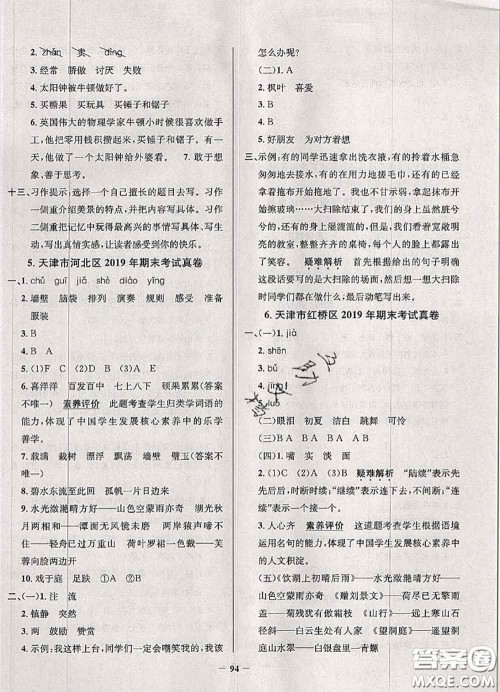 2. zhǎn 卖 dīng
3. 经常 骄傲 讨厌 失败
4. 太阳钟被牛顿做好了。
5. 买糖果 买玩具 买锤子和锯子
6. 英国伟大的物理学家牛顿小时候很喜欢做手工,他把零用钱积攒起来,买锤子和锯子,做了一个太阳钟给外婆看。 敢于想象,善于思考。
十三、习作提示:选择一个自己擅长的题目去写。习作一侧重介绍美景的特点,内容写具体。习作二侧重把自己印象最深或最高兴的事情写具体,写出真情实感,让读者感受到快乐。
5. 天津市河北区 2019 年期末考试真卷
一、1. chǔ guī jiǎ shè diào yīng
2. 墙壁 脑袋 排列 演奏 规则 感受 准备
服装
3. B
4. B A
5. (1)F (2)D (3)A (4)B (5)C
6. 喜洋洋 百发百中 七上八下 硕果累累(答案不唯一) 素养评价 此题考查学生归类学词语的能力,体现了中国学生发展核心素养中的乐学善学。
7. 栽 满载 截树 浮萍 飘荡 墙壁(答案不唯一)
8. 碧水东流至此回 孤帆一片日边来
9. 水光潋滟晴方好——山色空蒙雨亦奇 湖光秋月两相和——潭面无风镜未磨 两岸猿声啼不住——轻舟已过万重山 荷叶罗裙一色裁——芙蓉向脸两边开
10. 戏于庭 足跌 ①A ②B
二、(一)1. 注 流
2. 镇静 失声
3. 两 鼓励 赞赏
4. 示例:我这样上台,同学们一定会嘲笑我的,我该
怎么办呢?
(二)1. A
2. 枫叶 喜爱
3. B
4. B
5. 好朋友 为对方着想
三、示例:有的同学迅速拿出洗衣液,有的拎着水桶急匆匆地去接水,有的在用力地搓毛巾,还有的拿着拖把来来回回地拖开拖地了。我们不怕苦不怕累,尽管汗水像断了线的珠子,有的同学身体虽然已经疲惫不堪,有的身上湿漉漉的,但是,我们看着整洁、宽敞明亮的教室,心里都美滋滋的,脸上都露出了笑容。 疑难解析 根据给出的句子明确这段话要写的是大扫除时的场面,写出大扫除时同学们的表现即可。
6. 天津市红桥区 2019 年期末考试真卷
一、(一)1. jià
2. shēn
3. bǔ
4. jīng
5. luò
(二)眼泪 初夏 洁白 跳舞 可怜
(三)BA BA AB BA AB
(四)1. 嘴 实 淡 面
2. (1)C (2)A (3)①B ②A 疑难解析 “陆续”表示先先后后,时断时续;“继续”表示连下去,延长下去,不间断。
3. 人心齐 素养评价 这道题考查学生根据语境运用名句的能力,体现了中国学生发展核心素养中的人文积淀。
(五)《饮湖上初晴后雨》——水光潋滟晴方好——山色空蒙雨亦奇 《赠刘景文》——荷尽已无擎雨盖——菊残犹有傲霜枝 《山行》——远上寒山石径斜——白云生处有人家 《望洞庭》——遥望洞庭山水翠——白银盘里一青螺
94
答案圈
MXQE.COM